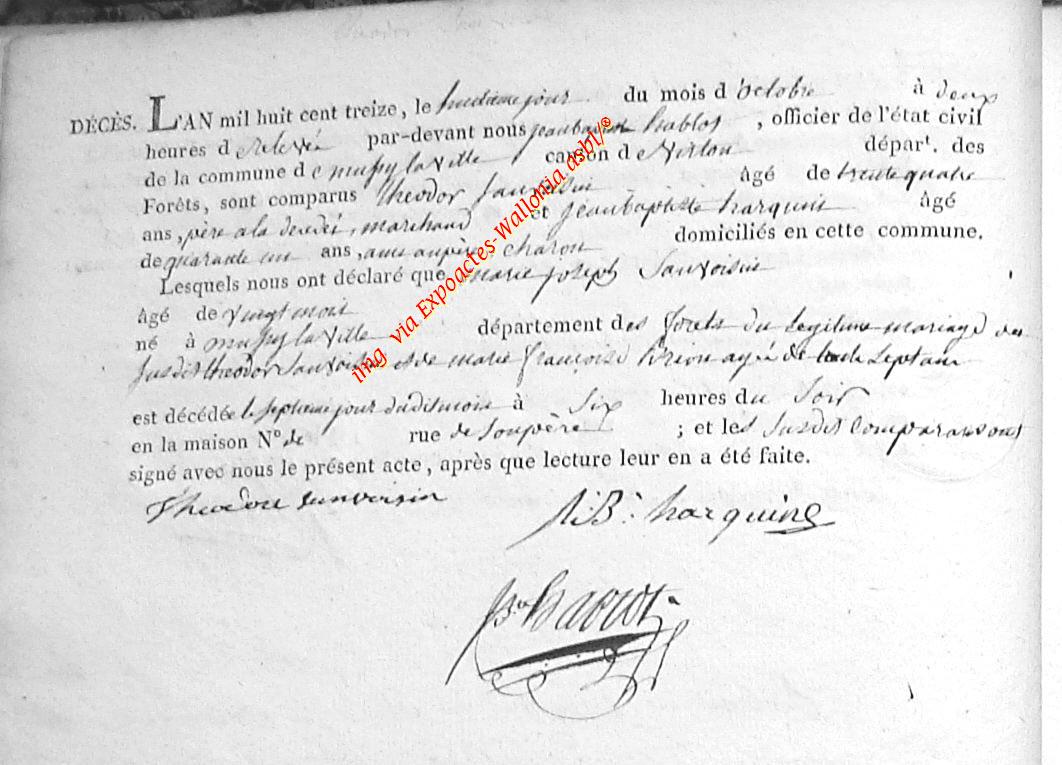 DÉCÈS. L'AN mil huit cent treize, le huitieme jour du mois d'octobre à deux
heures d e Relevé par-devant nous jeanbaptiste , officier de l'état civil
de la commune d e mussy la ville canton d e Virton départ. des
Forêts, sont comparus theodor Sauvoisin âgé de trente quatre
ans, père a la decedé, marchand et jeanbaptiste harquin âgé
de quarante un ans, charon domiciliés en cette commune.
Lesquels nous ont déclaré que marie joseph Sauvoisin
âgé de vingt mois
né à mussy la ville département des forets du legitime mariage des
susdit theodor Sauvoisin et de marie françoise agée de trente Sept ans
est décédée le septieme jour dudit mois à Six heures du Soir
en la maison N.º de rue de son père ; et les susdits comparans ont
signé avec nous le présent acte, après que lecture leur en a été faite.
Theodore sauvoisin
J: B: harquing
img via Expoactes-Wallonia asbl/®